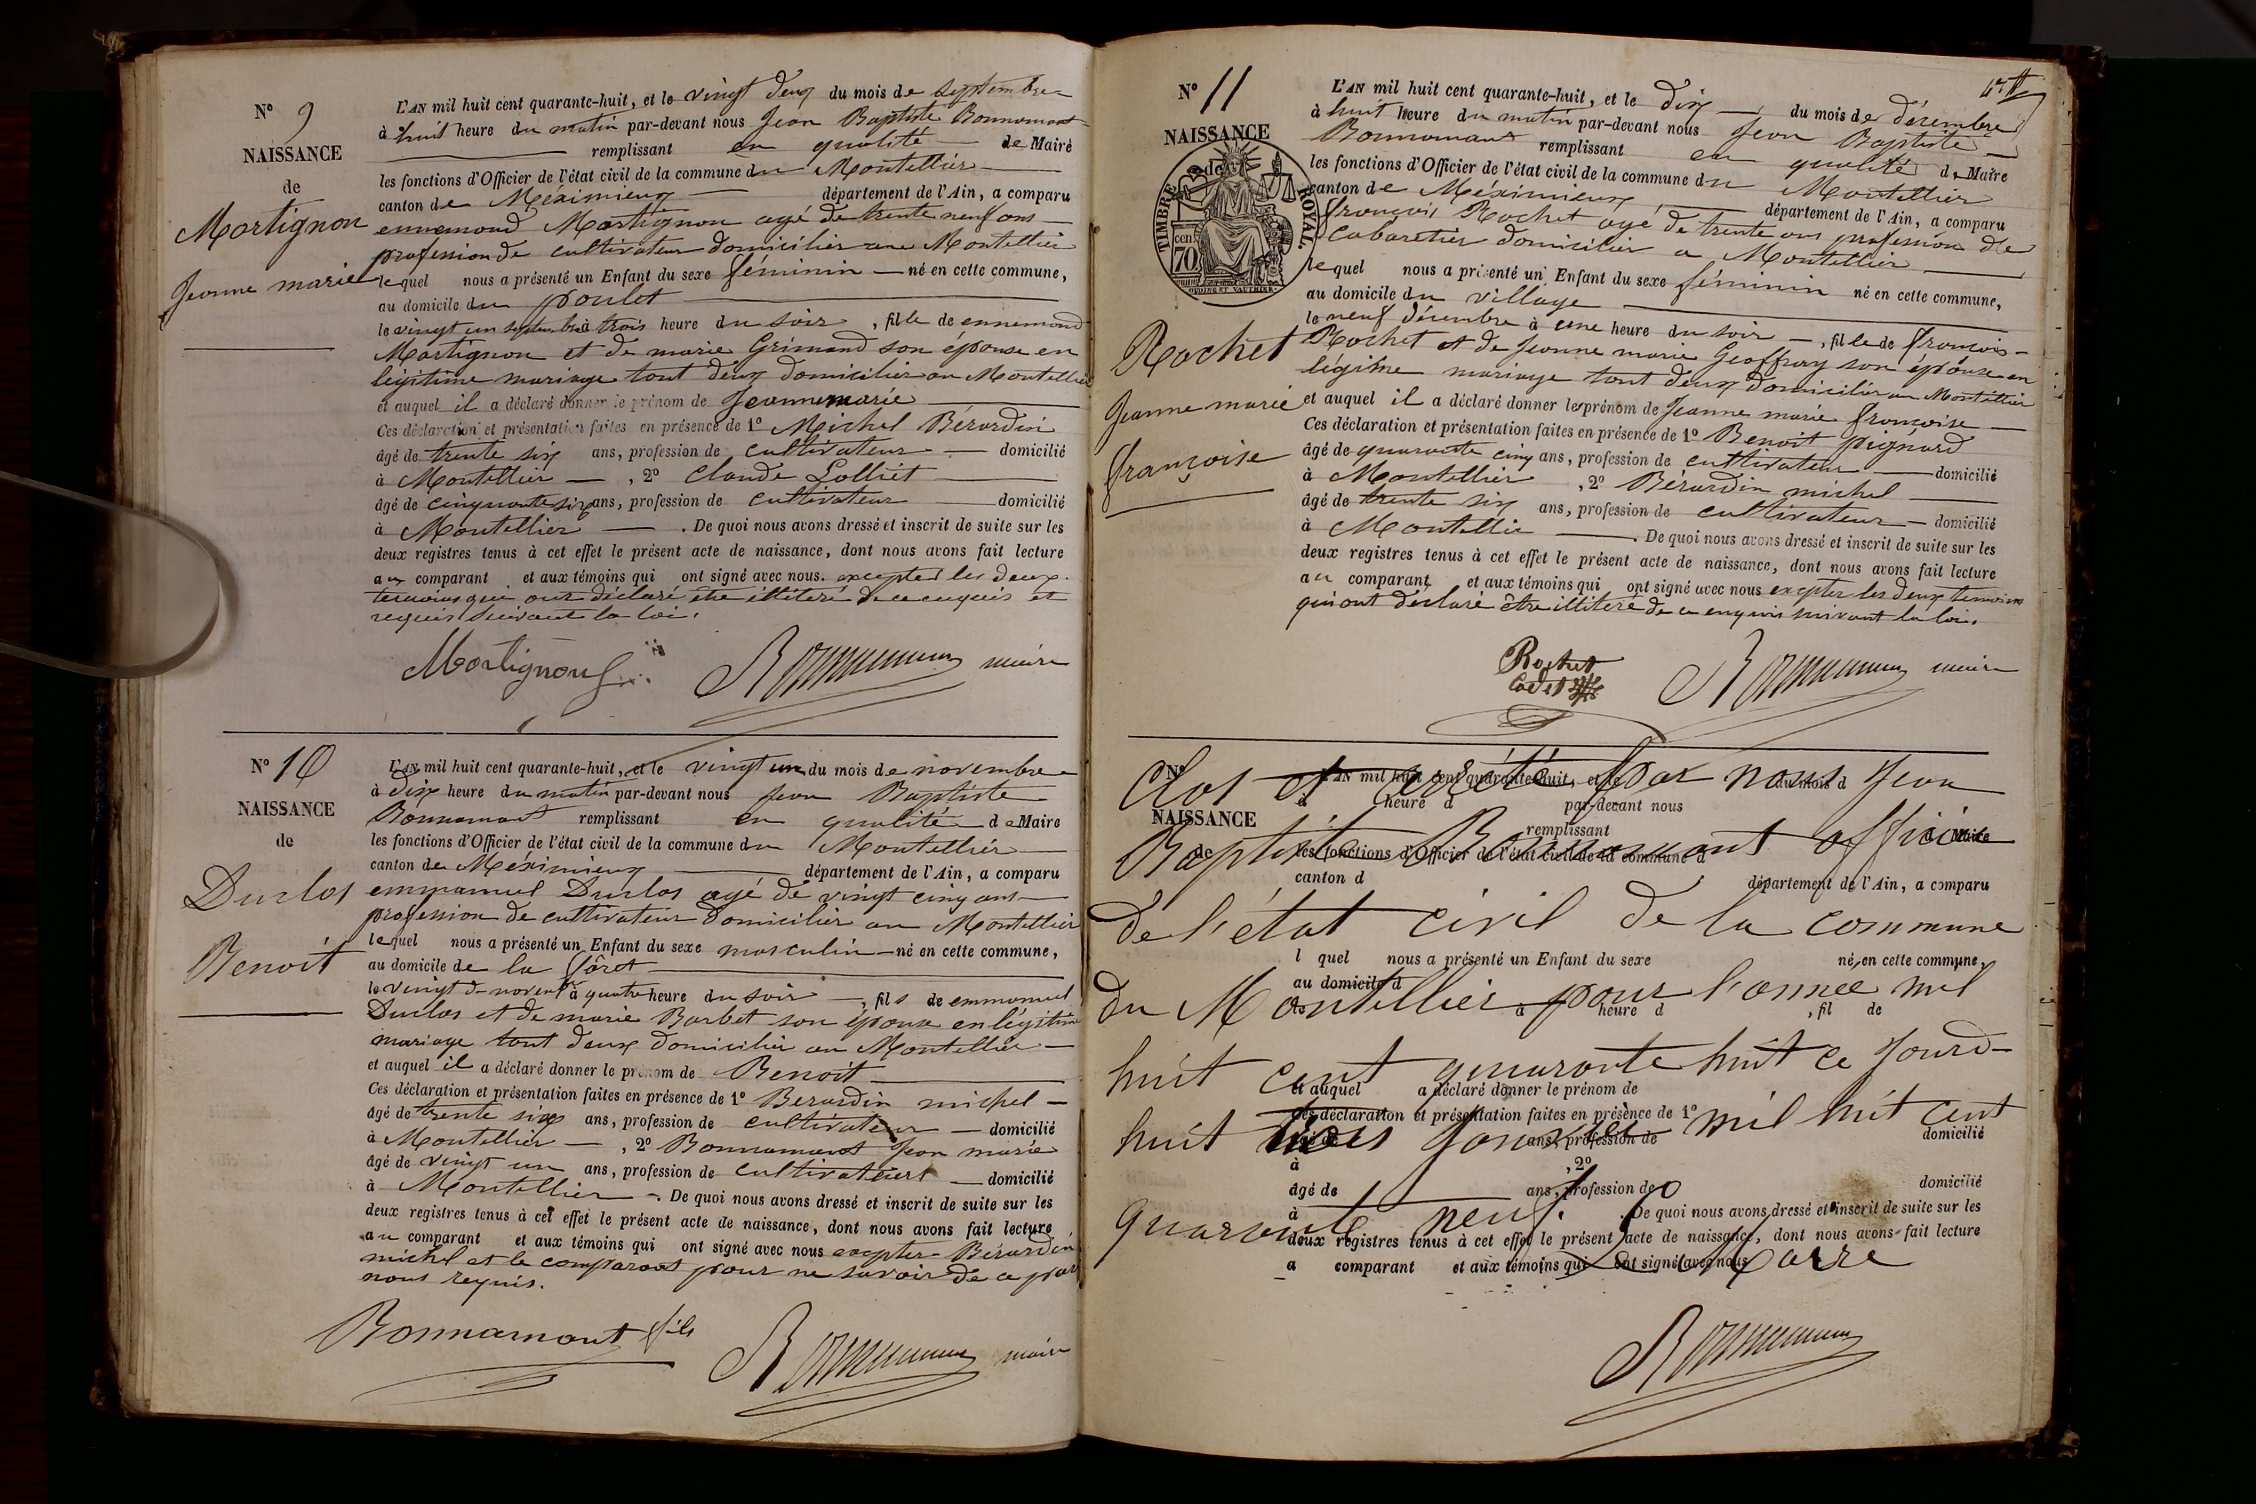 N° 9
NAISSANCE
de
Martignon
Jeanne marie
L'AN mil huit cent quarante-huit, et le vingt deux du mois de septembre
à huit heure du matin par-devant nous Jean Baptiste Bonnamant
remplissant en qualité de Maire
les fonctions d'Officier de l'état civil de la commune du Montellier
canton de Méximieux département de l'Ain, a comparu
ennemond Martignon agé de trente neuf ans
profession de cultivateur domicilier au Montellier
lequel nous a présenté un Enfant du sexe féminin né en cette commune,
au domicile du poulet
le vingt un septembre à trois heure du soir, fille de ennemond
Martignon et de marie Grimand son épouse en
légitime mariage tout deux domicilier au Montellier
et auquel il a déclaré donner le prénom de Jeanne marie
Ces déclaration et présentation faites en présence de 1° Michel Bérardin
âgé de trente six ans, profession de cultivateur domicilié
à Montellier, 2° Claude Lolliet
âgé de cinquante six ans, profession de cultivateur domicilié
à Montellier. De quoi nous avons dressé et inscrit de suite sur les
deux registres tenus à cet effet le présent acte de naissance, dont nous avons fait lecture
au comparant et aux témoins qui ont signé avec nous. excepter les deux
temoins qui ont déclaré être illiteré de ce enquis et
requis suivant la loi.
Martignon maire
N° 10
NAISSANCE
de
Duclos
Benoit
L'AN mil huit cent quarante-huit, et le vingt un du mois de novembre
à dix heure du matin par-devant nous Jean Baptiste
Bonnamant remplissant en qualité de Maire
les fonctions d'Officier de l'état civil de la commune du Montellier
canton de Méximieux département de l'Ain, a comparu
emmanuel Duclos agé de vingt cinq ans
profession de cultivateur domicilier au Montellier
lequel nous a présenté un Enfant du sexe masculin né en cette commune,
au domicile de la fôret
le vingt novem à quatre heure du soir, fils de emmanuel
Duclos et de marie Barbet son épouse en légitime
mariage tout deux domicilier au Montellier
et auquel il a déclaré donner le prénom de Benoit
Ces déclaration et présentation faites en présence de 1° Berardin michel
âgé de trente six ans, profession de cultivateur domicilié
à Montellier, 2° Bonnamant Jean marie
âgé de vingt un ans, profession de cultivateur domicilié
à Montellier. De quoi nous avons dressé et inscrit de suite sur les
deux registres tenus à cet effet le présent acte de naissance, dont nous avons fait lecture
au comparant et aux témoins qui ont signé avec nous excepter Bérardin
michel et le comparant pour ne savoir de ce par
nous requis.
Bonnamant fils maire
N° 11
NAISSANCE
TIMBRE ROYAL.
70 cent
Rochet
Jeanne marie
françoise
L'AN mil huit cent quarante-huit, et le dix du mois de décembre
à huit heure du matin par-devant nous Jean Baptiste
Bonnamant remplissant en qualité de Maire
les fonctions d'Officier de l'état civil de la commune du Montellier
canton de Méximieux département de l'Ain, a comparu
françois Rochet agé de trente ans profession de
cabaretier domicilier au Montellier
lequel nous a présenté un Enfant du sexe féminin né en cette commune,
au domicile du village
le neuf décembre à une heure du soir, fille de françois
Rochet et de Jeanne marie Geoffray son épouse en
légitime mariage tout deux domicilier au Montellier
et auquel il a déclaré donner les prénom de Jeanne marie françoise
Ces déclaration et présentation faites en présence de 1° Benoit pignard
âgé de quarante cinq ans, profession de cultivateur domicilié
à Montellier, 2° Bérardin michel
âgé de trente six ans, profession de cultivateur domicilié
à Montellier. De quoi nous avons dressé et inscrit de suite sur les
deux registres tenus à cet effet le présent acte de naissance, dont nous avons fait lecture
au comparant et aux témoins qui ont signé avec nous excepter les deux temoins
qui ont déclaré être illiteré de ce enquis suivant la loi.
Rochet
Cadet
maire
N°
NAISSANCE
de
L'AN mil huit cent quarante-huit, et le du mois d
à heure d par-devant nous
remplissant de Maire
les fonctions d'Officier de l'état civil de la commune d
canton d département de l'Ain, a comparu
l quel nous a présenté un Enfant du sexe né en cette commune,
au domicile d
le à heure d, fil de
et auquel a déclaré donner le prénom de
Ces déclaration et présentation faites en présence de 1°
âgé de ans, profession de domicilié
à , 2°
âgé de ans, profession de domicilié
à . De quoi nous avons dressé et inscrit de suite sur les
deux registres tenus à cet effet le présent acte de naissance, dont nous avons fait lecture
a comparant et aux témoins qui ont signé avec nous
Clos et arrêté par nous Jean
Baptiste Bonnamant officier
de l'état civil de la commune
du Montellier pour l'année mil
huit cent quarante huit ce jourd-
huit trois Janvier mil huit cent
quarante neuf.
Le Marre